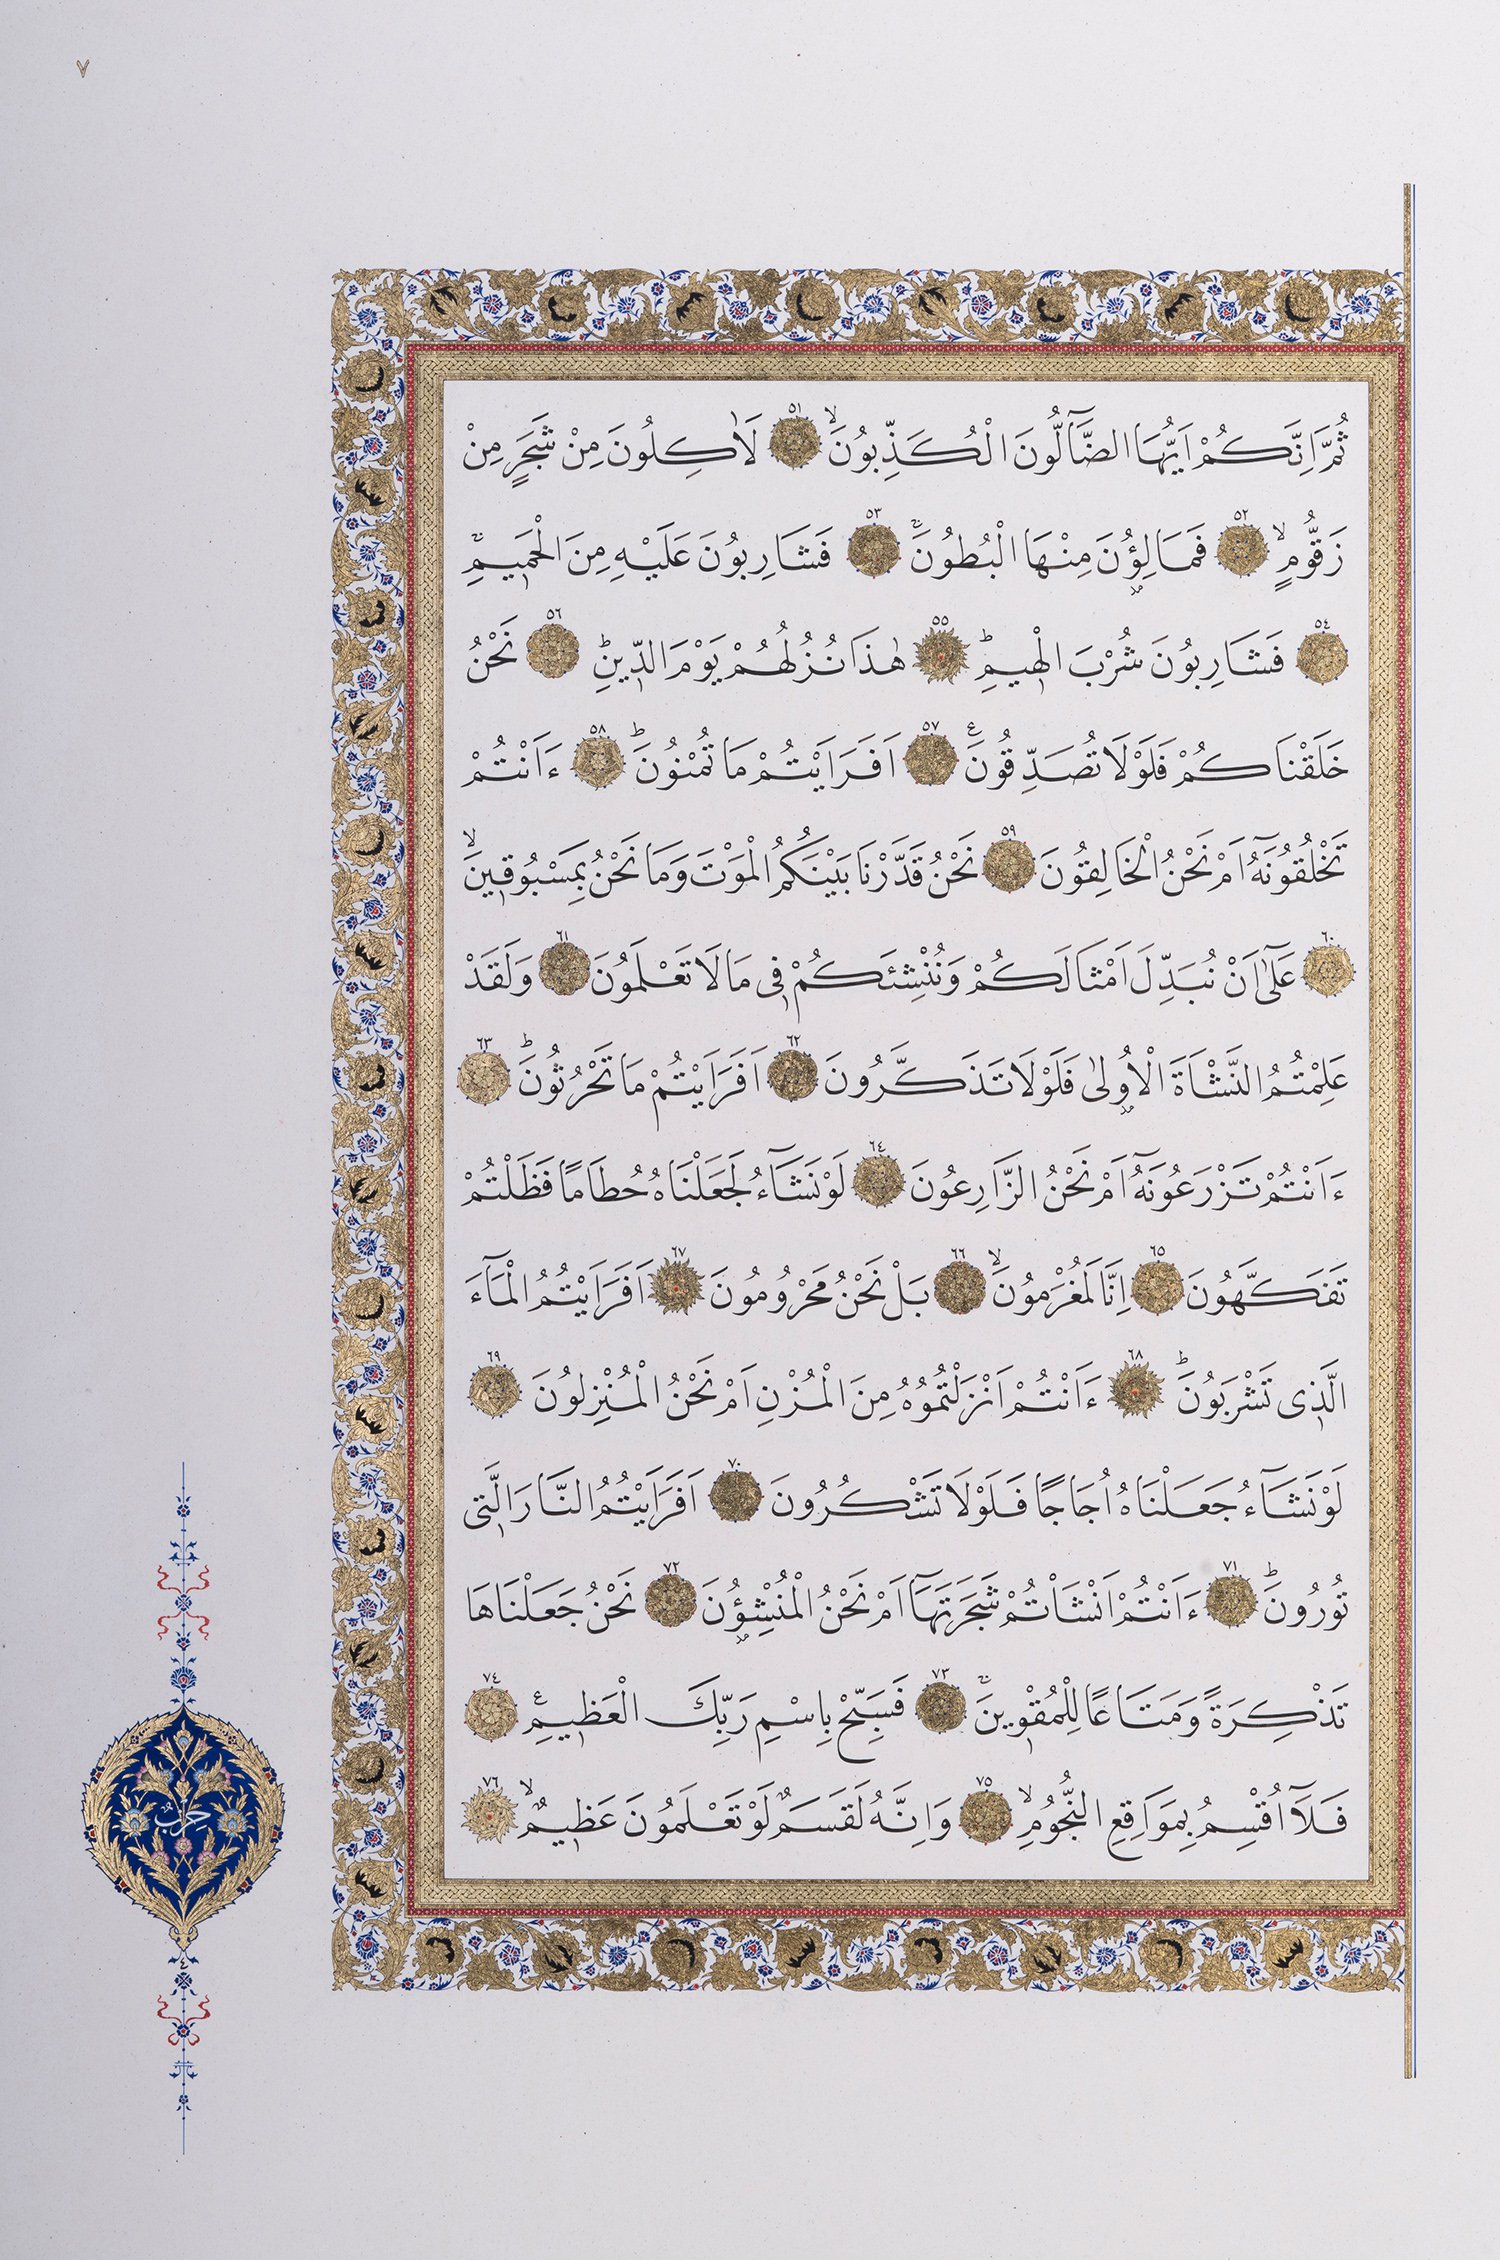 ٧
ثُمَّ اِنَّكُمْ اَيُّهَا الضَّٓالُّونَ الْمُكَذِّبُونَۙ ٥١ لَاٰكِلُونَ مِنْ شَجَرٍ مِنْ
زَقُّومٍۙ ٥٢ فَمَالِؤُنَ مِنْهَا الْبُطُونَۚ ٥٣ فَشَارِبُونَ عَلَيْهِ مِنَ الْحَمٖيمِۚ
٥٤ فَشَارِبُونَ شُرْبَ الْهٖيمِؕ ٥٥ هٰذَا نُزُلُهُمْ يَوْمَ الدّٖينِؕ ٥٦ نَحْنُ
خَلَقْنَاكُمْ فَلَوْلَا تُصَدِّقُونَ ٥٧ اَفَرَاَيْتُمْ مَا تُمْنُونَؕ ٥٨ ءَاَنْتُمْ
تَخْلُقُونَهُٓ اَمْ نَحْنُ الْخَالِقُونَ ٥٩ نَحْنُ قَدَّرْنَا بَيْنَكُمُ الْمَوْتَ وَمَا نَحْنُ بِمَسْبُوقٖينَۙ
٦٠ عَلٰٓى اَنْ نُبَدِّلَ اَمْثَالَكُمْ وَنُنْشِئَكُمْ فٖى مَا لَا تَعْلَمُونَ ٦١ وَلَقَدْ
عَلِمْتُمُ النَّشْاَةَ الْاُو۫لٰى فَلَوْلَا تَذَكَّرُونَ ٦٢ اَفَرَاَيْتُمْ مَا تَحْرُثُونَؕ ٦٣
ءَاَنْتُمْ تَزْرَعُونَهُٓ اَمْ نَحْنُ الزَّارِعُونَ ٦٤ لَوْ نَشَٓاءُ لَجَعَلْنَاهُ حُطَامًا فَظَلْتُمْ
تَفَكَّهُونَ ٦٥ اِنَّا لَمُغْرَمُونَۙ ٦٦ بَلْ نَحْنُ مَحْرُومُونَ ٦٧ اَفَرَاَيْتُمُ الْمَٓاءَ
الَّذٖى تَشْرَبُونَؕ ٦٨ ءَاَنْتُمْ اَنْزَلْتُمُوهُ مِنَ الْمُزْنِ اَمْ نَحْنُ الْمُنْزِلُونَ ٦٩
لَوْ نَشَٓاءُ جَعَلْنَاهُ اُجَاجًا فَلَوْلَا تَشْكُرُونَ ٧٠ اَفَرَاَيْتُمُ النَّارَ الَّتٖى
تُورُونَؕ ٧١ ءَاَنْتُمْ اَنْشَاْتُمْ شَجَرَتَهَٓا اَمْ نَحْنُ الْمُنْشِؤُ۫نَ ٧٢ نَحْنُ جَعَلْنَاهَا
تَذْكِرَةً وَمَتَاعًا لِلْمُقْوٖينَۚ ٧٣ فَسَبِّحْ بِاسْمِ رَبِّكَ الْعَظٖيمِ ٧٤
فَلَٓا اُقْسِمُ بِمَوَاقِعِ النُّجُومِۙ ٧٥ وَاِنَّهُ لَقَسَمٌ لَوْ تَعْلَمُونَ عَظٖيمٌۙ ٧٦
حزب